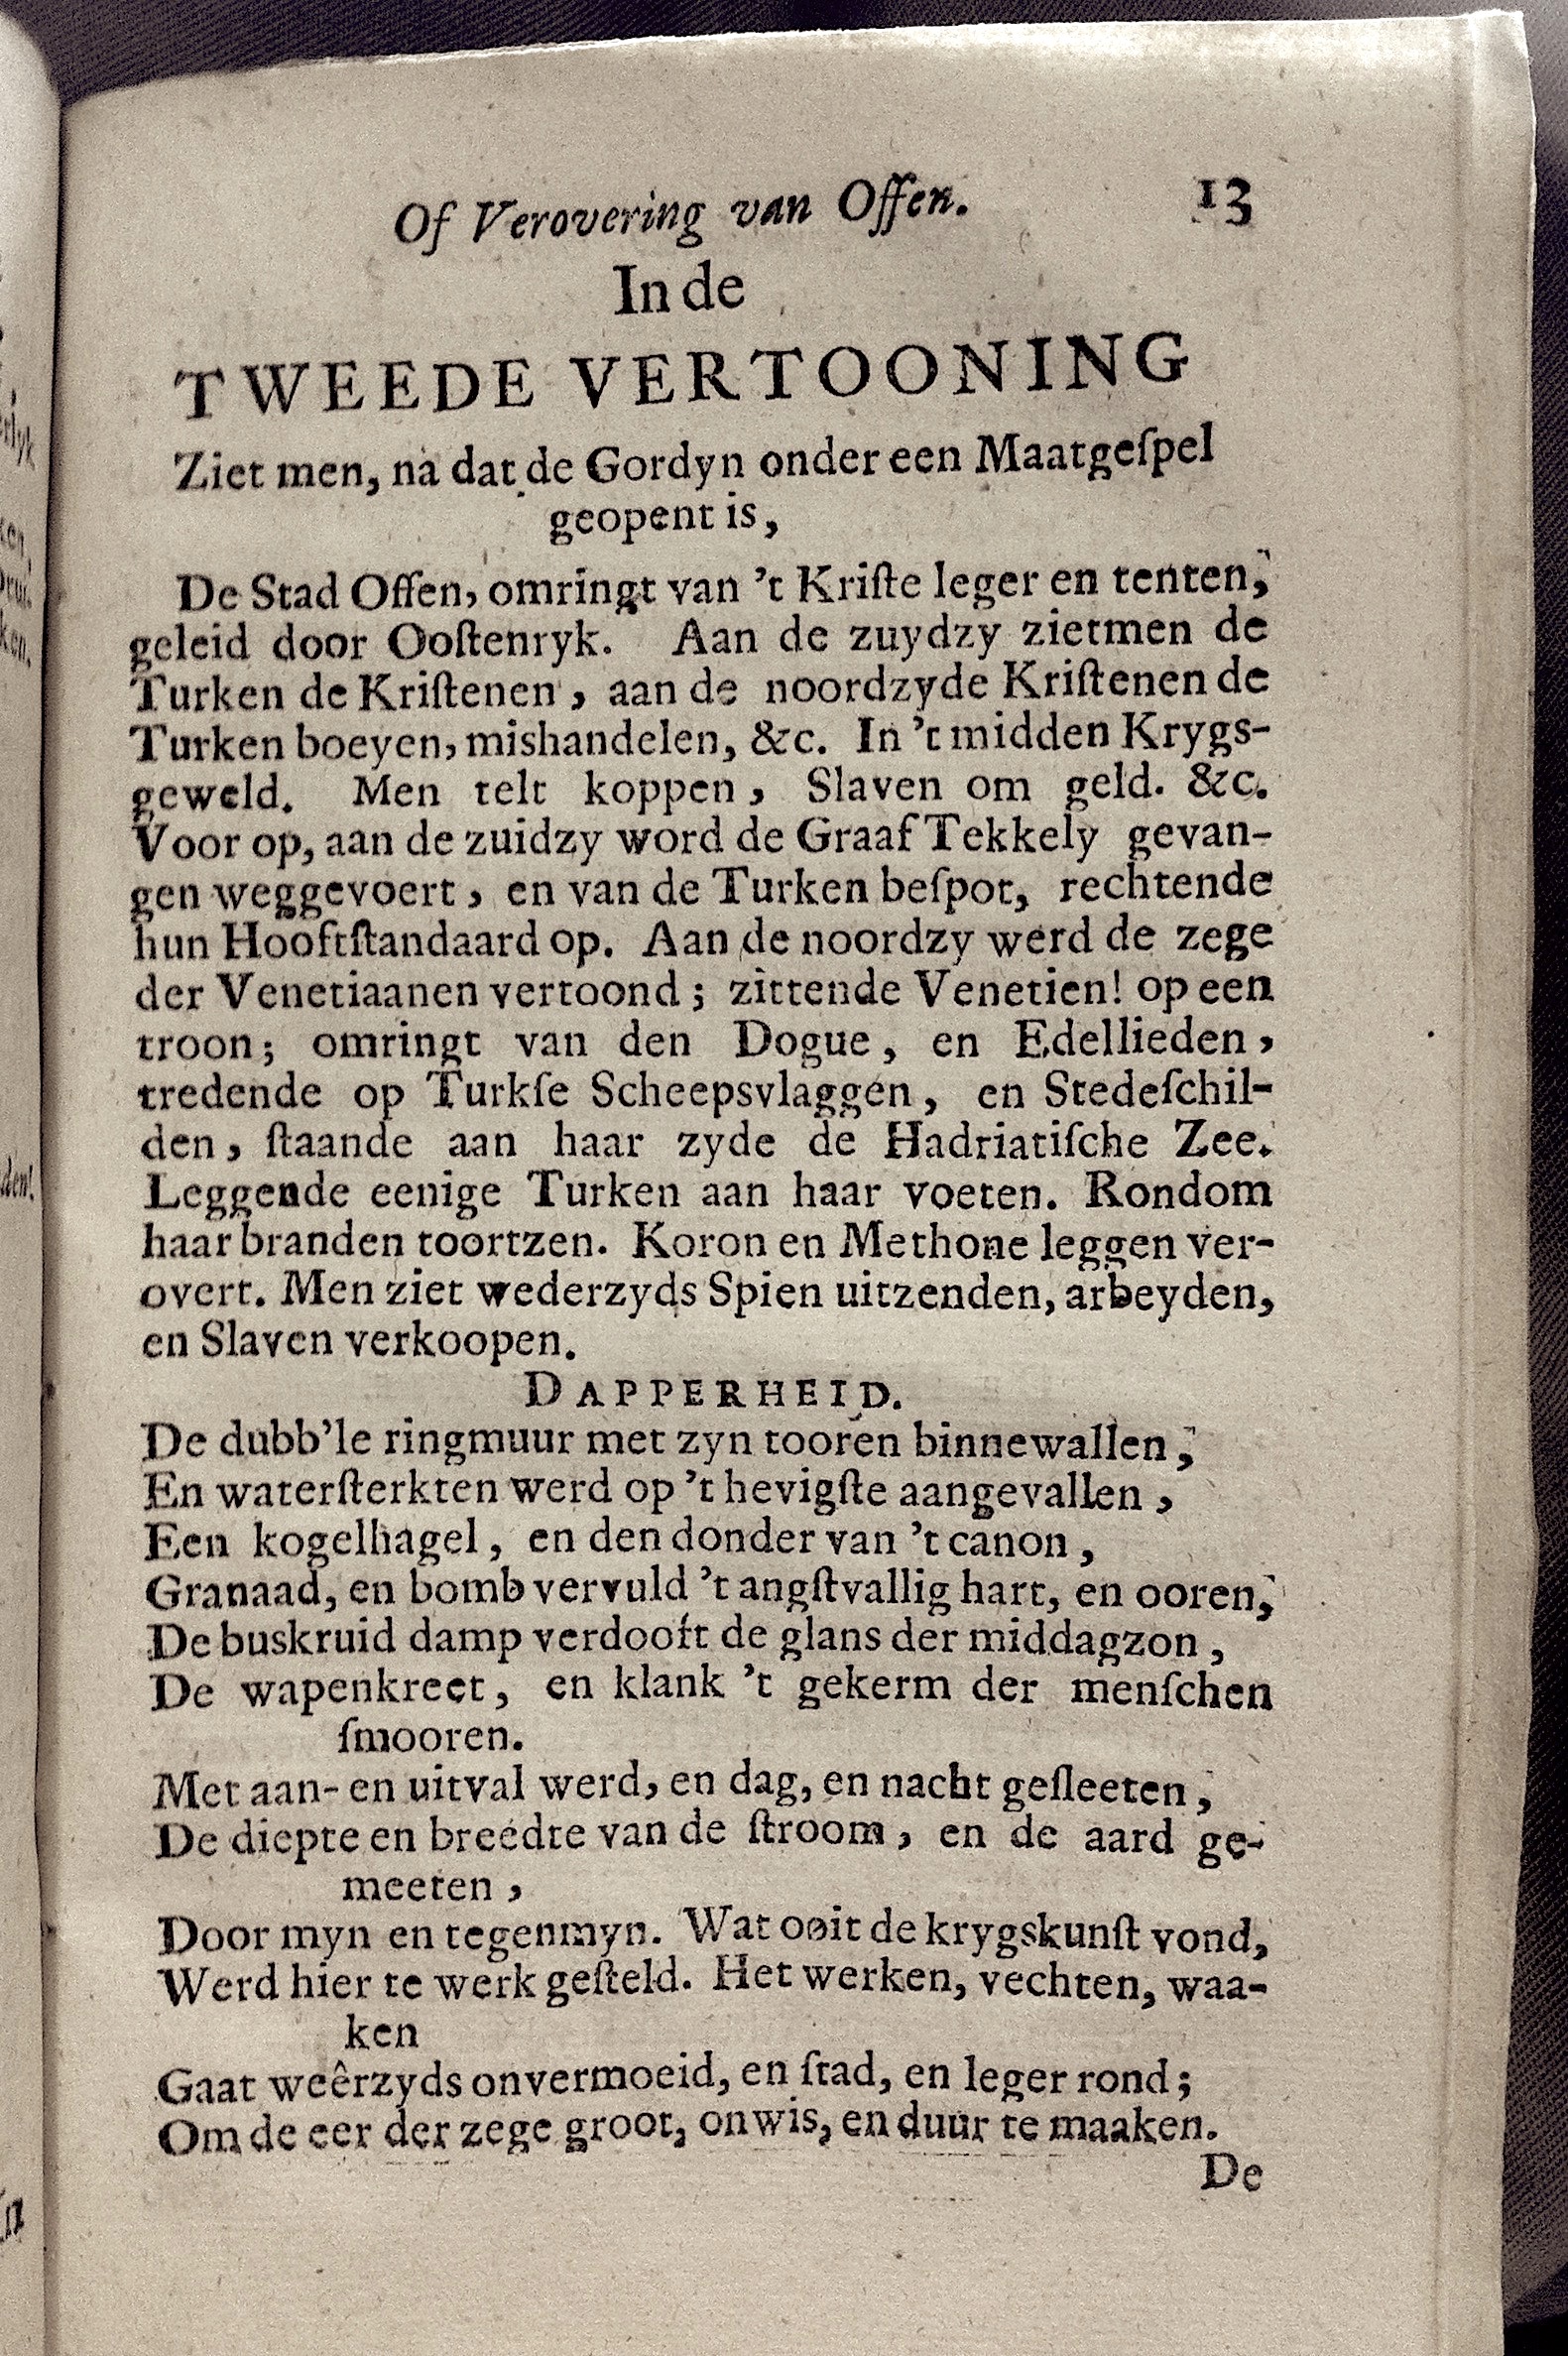 Of Verovering van Offen. 13
In de
TWEEDE VERTOONING
Ziet men, na dat de Gordyn onder een Maatgeſpel
geopent is,
De Stad Offen, omringt van 't Kriſte leger en tenten,
geleid door Ooſtenryk. Aan de zuydzy zietmen de
Turken de Kriſtenen, aan de noordzyde Kriſtenen de
Turken boeyen, mishandelen, &c. In 't midden Krygs-
geweld. Men telt koppen, Slaven om geld. &c.
Voor op, aan de zuidzy word de Graaf Tekkely gevan-
gen weggevoert, en van de Turken beſpot, rechtende
hun Hooftſtandaard op. Aan de noordzy werd de zege
der Venetiaanen vertoond; zittende Venetien! op een
troon; omringt van den Dogue, en Edellieden,
tredende op Turkſe Scheepsvlaggen, en Stedeſchil-
den, ſtaande aan haar zyde de Hadriatiſche Zee.
Leggende eenige Turken aan haar voeten. Rondom
haar branden toortzen. Koron en Methone leggen ver-
overt. Men ziet wederzyds Spien uitzenden, arbeyden,
en Slaven verkoopen.
DAPPERHEID.
De dubb'le ringmuur met zyn tooren binnewallen,
En waterſterkten werd op 't hevigſte aangevallen,
Een kogelhagel, en den donder van 't canon,
Granaad, en bomb vervuld 't angſtvallig hart, en ooren,
De buskruid damp verdooft de glans der middagzon,
De wapenkreet, en klank 't gekerm der menſchen
ſmooren.
Met aan- en uitval werd, en dag, en nacht geſleeten,
De diepte en breedte van de ſtroom, en de aard ge-
meeten,
Door myn en tegenmyn. Wat ooit de krygskunſt vond,
Werd hier te werk geſteld. Het werken, vechten, waa-
ken
Gaat weêrzyds onvermoeid, en ſtad, en leger rond;
Om de eer der zege groot, onwis, en duur te maaken.
De